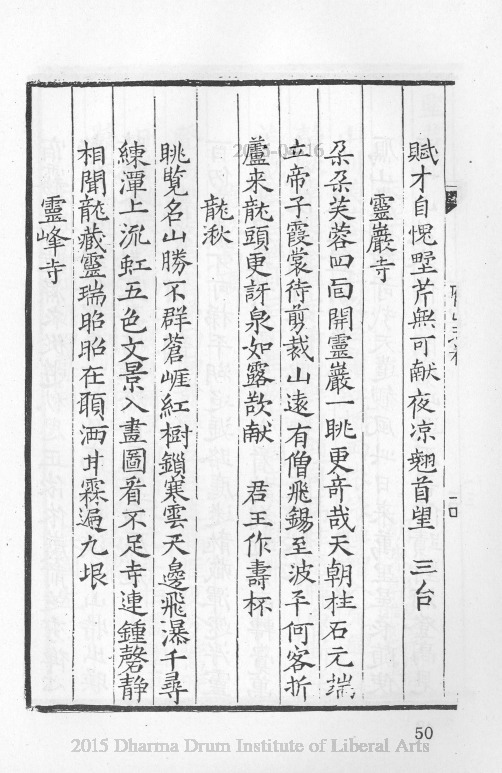 賦才自愧墅芹無可献夜凉翹首望　三台
靈巖寺
朶朶芙蓉四靣開靈巖一眺更竒哉天朝柱石元端
立帝子霞裳待剪裁山遠有僧飛錫至波平何客折
蘆来龍頭更訝泉如露欲献　君王作壽杯
龍秋
眺覧名山勝不群蒼崕紅樹鎖寒雲天邊飛瀑千尋
練潭上流虹五色文景入畫圖看不足寺連鍾磬静
相聞龍藏靈瑞昭昭在頋洒甘霖遍九垠
靈峰寺
一四
50
2015 Dharma Drum Institute of Liberal Arts